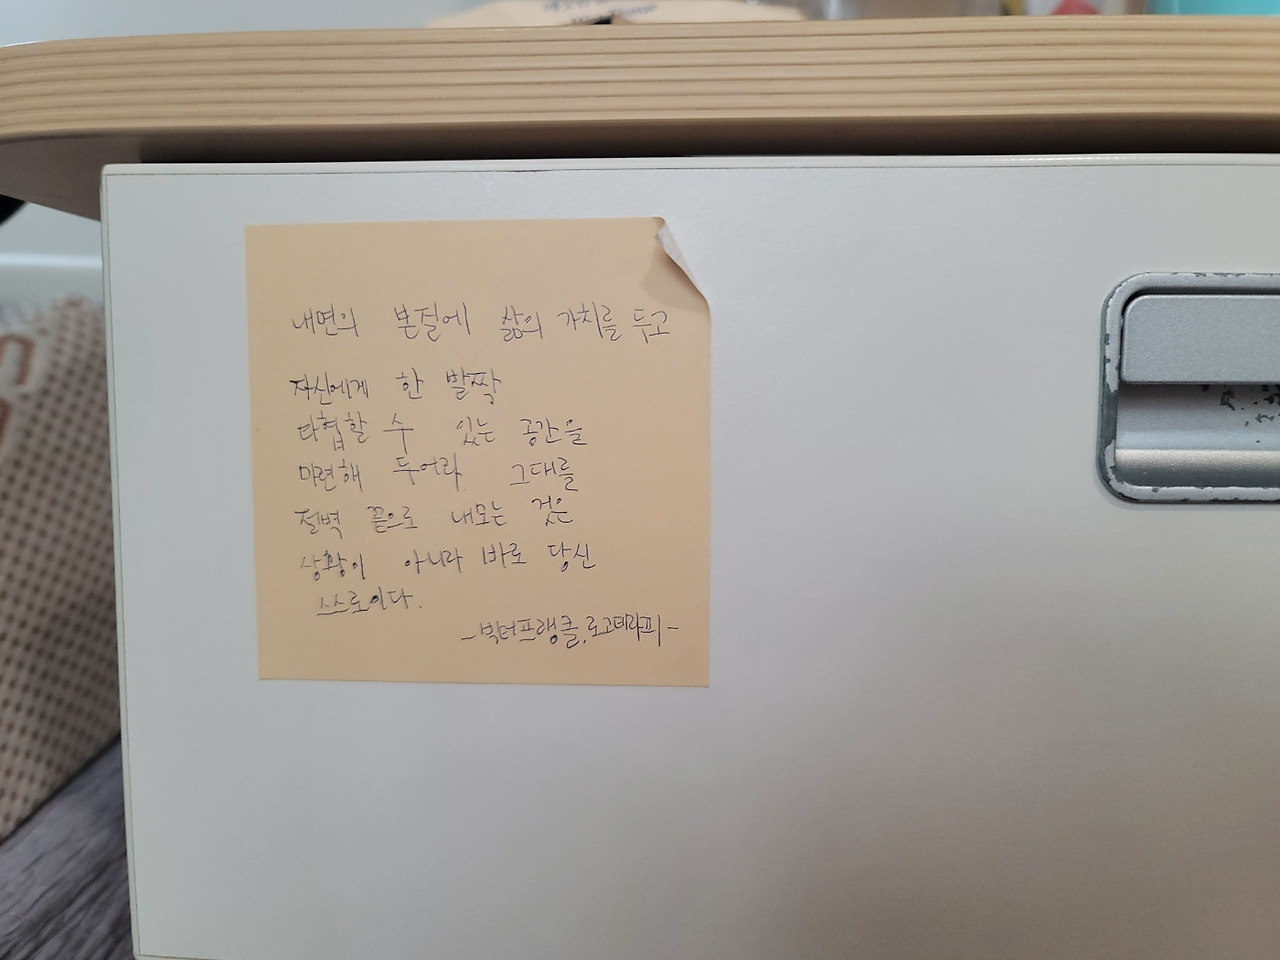 내면의 본질에 삶의 가치를 두고
자신에게 한 발짝
타협할 수 있는 공간을
마련해 두어라. 그대를
절벽 끝으로 내모는 것은
상황이 아니라 바로 당신
스스로이다.
-빅터프랭클, 로고테라피-